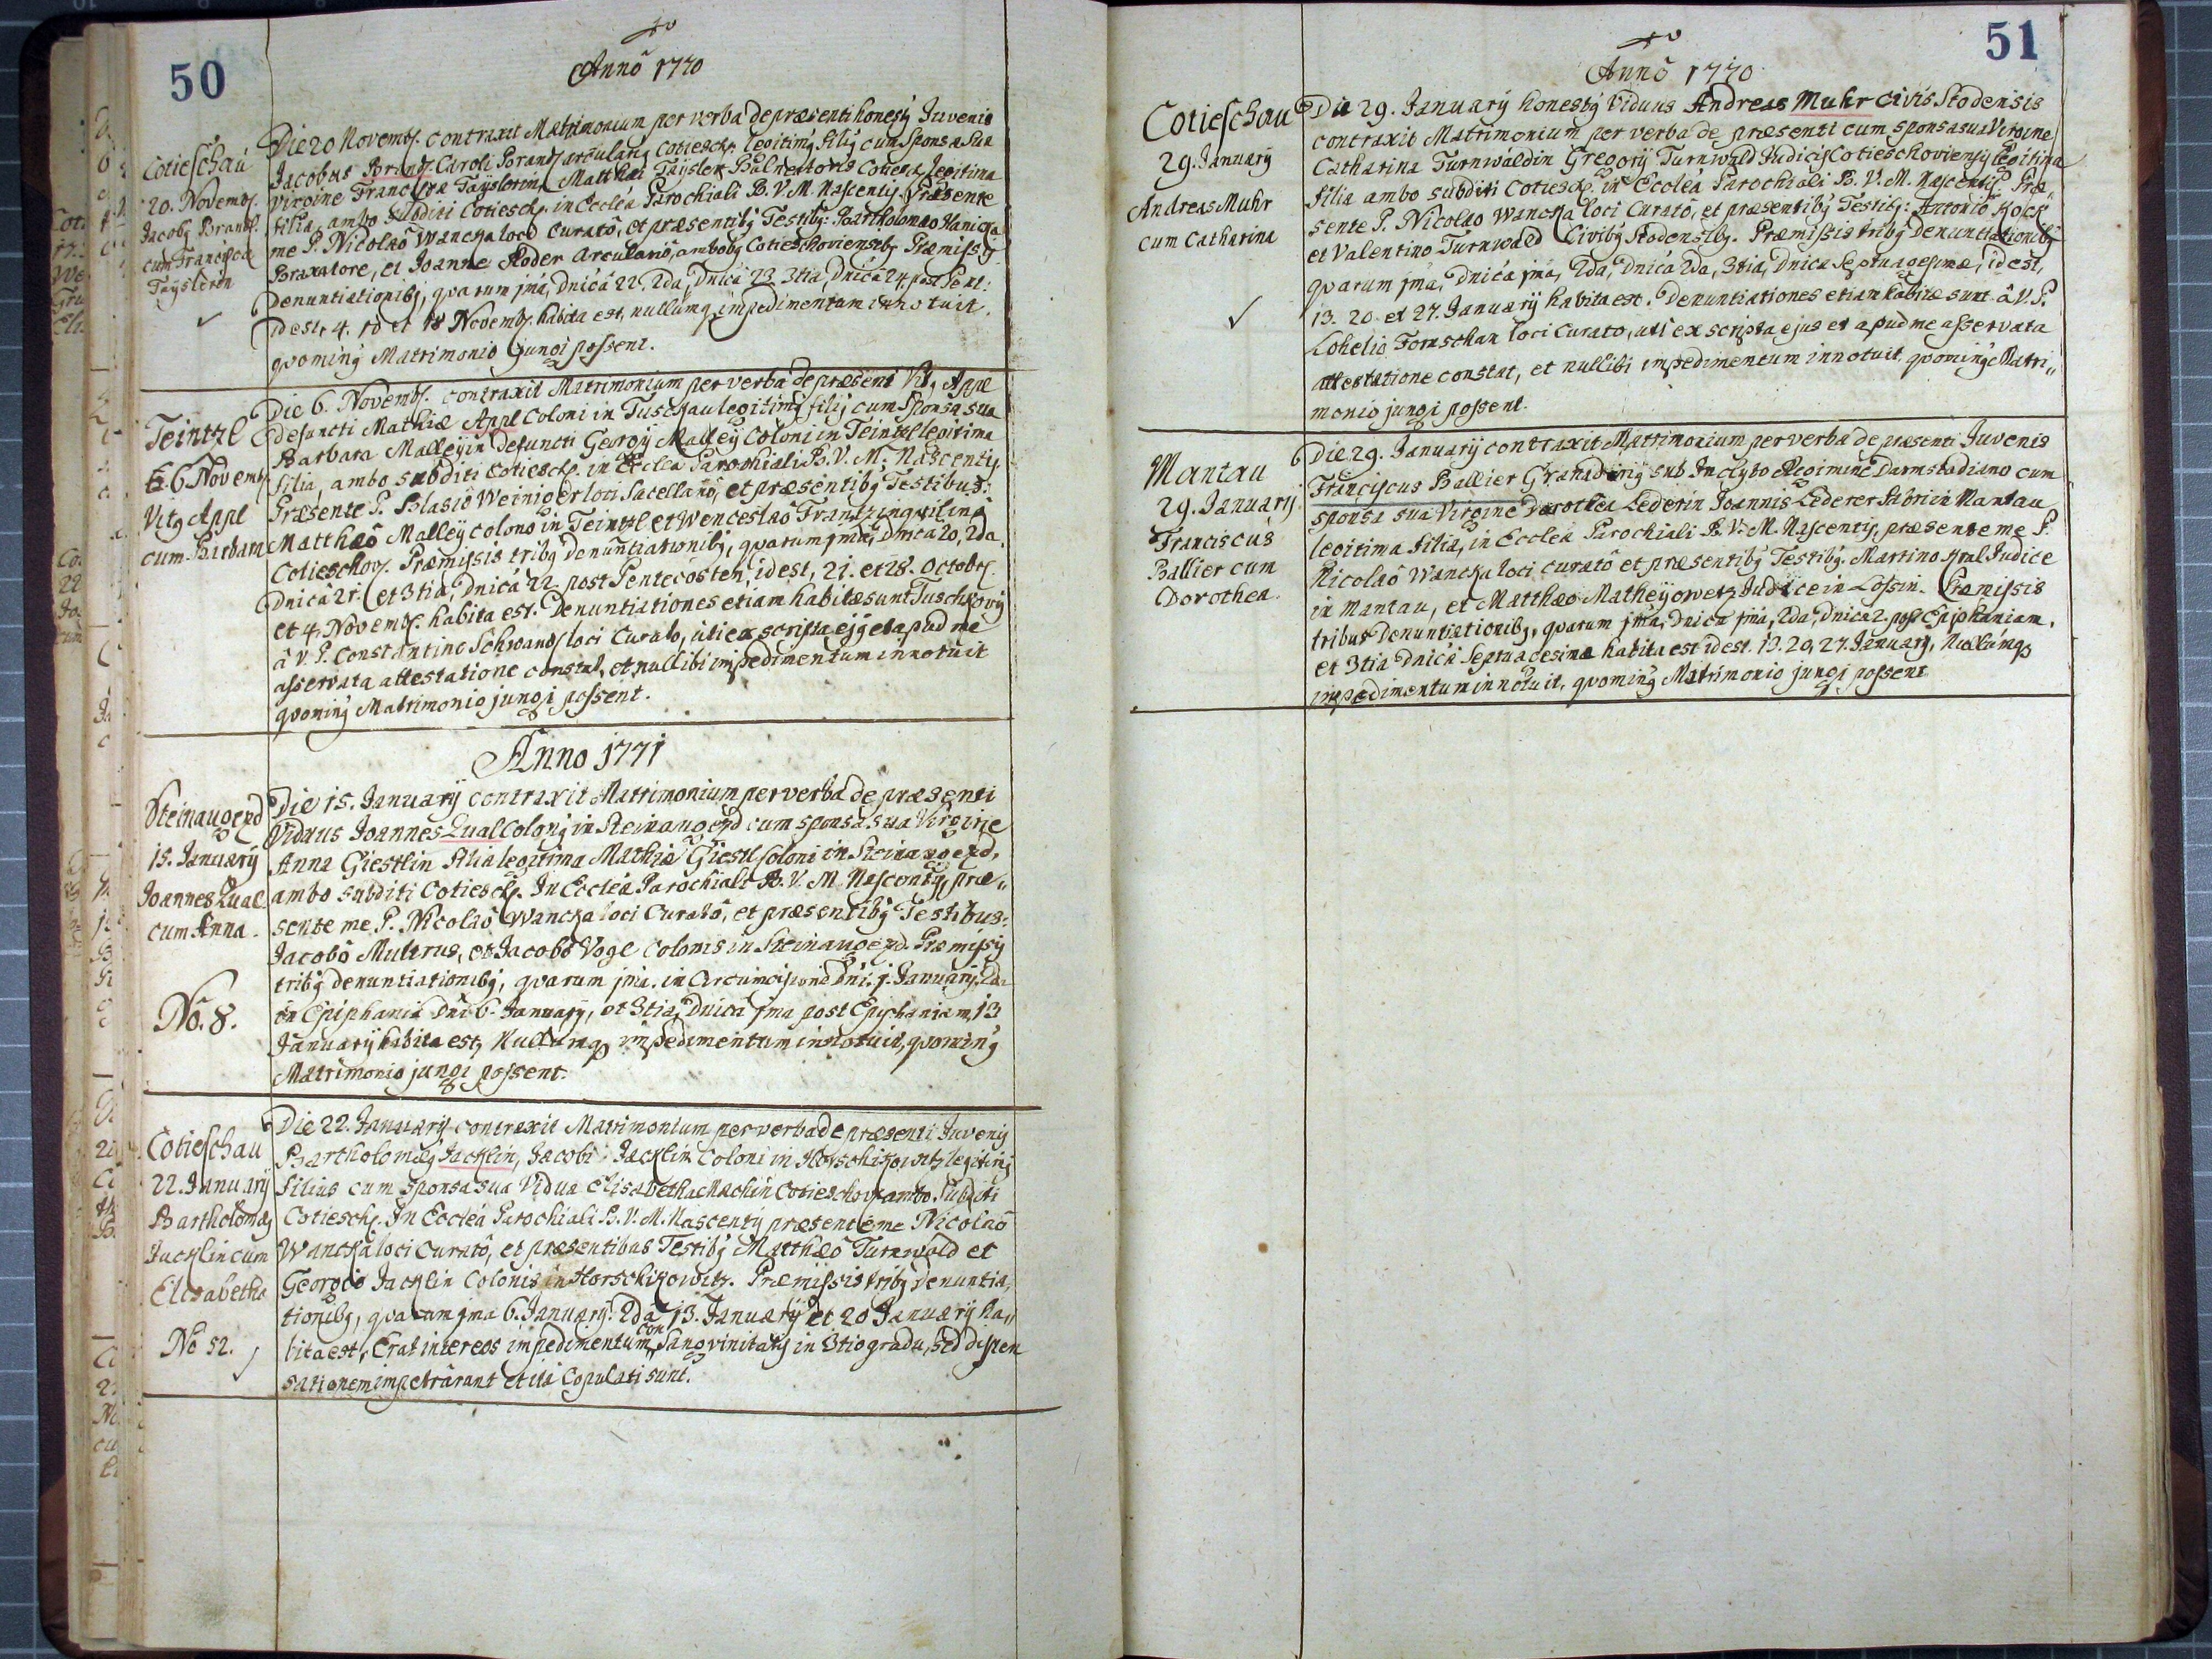 50
Anno 1770
Cotieschau
20. Novemb.
Jacobg Brand.
cum Francisca
Taÿslerin
Die 20 Novemb. contraxit Matrimonium per verba de præsenti honestg Juvenis
Jacobus Brandt Caroli Brandt arcularij Cotiesch. legitimg filig cum Sponsa Sua
Virgine Francisca Taÿslerin, Matthæi Taÿsler Balneatoris Cotiesch. Legitima
filia, ambo subditi Cotiesch. in Eccleá Parochiali B. V. M. Nascentis. Præsente
me P. Nicolaô Wancka loci Curatô, et præsentibg Testibg: Bartholomæo Hanicka
Braxatore, et Joanne Ploder Arculariô, ambobg Cotieschoviensibg. Præmissis
Denuntiationibg, quarum jmá, Dnicá 22, 2da, Dnicá 23, 3tia, Dnicá 24 post Pent:
id est, 4. et 18 Novemb. habita est, nullumq impedimentum innotuit,
qvoming Matrimonio jungi possent.
Teintzl
6. Novemb.
Vitg Appl
cum Barbara
Die 6. Novemb. contraxit Matrimonium per verba de præsenti Vitg Appl
defuncti Mathiæ Appl Coloni in Tuschkau legitimg filig cum Sponsa sua
Barbara Malleÿin defuncti Georgij Malleÿ Coloni in Teintzl legitima
filia, ambo subditi Cotiesch. in Ecclea Parochiali B. V. M. Nascentis.
Præsente P. Blasiô Weiniger loci Sacellanô, et præsentibg Testibus:
Matthæô Malleÿ colonô in Teintzl et Wenceslaô Frantz inquilinô
Cotieschov. Præmissis tribg denuntiationibg, quarum jma, Dnicá 20, 2da,
Dnicá 21. et 3tia, Dnicá 22 post Pentecosten, id est, 21. et 28. Octobr.
et 4. Novemb. habita est. Denuntiationes etiam habitæ sunt Tuschkovij
â V. P. Constantino Schwand loci Curato, uti ex scripta ejg et apud me
asservata attestatione constat, et nullibi impedimentum innotuit
qvoming Matrimonio jungi possent.
Anno 1771
Steinaugezd
15. Januarÿ
Joannes Lual
cum Anna.
No. 8.
Die 15. Januarÿ contraxit Matrimonium per verba de præsenti
Viduus Joannes Lual Colong in Steinaugezd cum sponsa sua Virgine
Anna Giestlin filia legitima Mathiæ Giestl Coloni in Steinaugezd,
ambo subditi Cotiesch. In Eccleá Parochiali B. V. M. Nascentis, præ„
sente me P. Nicolaô Wancka loci Curatô, et præsentibg Testibus:
Jacobô Multrus, et Jacobô Vogl Colonis in Steinaugezd. Præmissis
tribg denuntiationibg, quarum jma. in Circumcisione Dni. j. Januarij, 2da
in Epiphania Dni 6. Januarÿ, et 3tia, Dnicá jma post Epiphaniam, 13
Januarÿ habita est, Nullumq impedimentum innotuit, qvoming
Matrimonio jungi possent.
Cotieschau
22. Januarÿ
Bartholomæg
Jacklin cum
Elisabetha
No 52.
Die 22. Januarÿ contraxit Matrimonium per verba de præsenti Juvenis
Bartholomæg Jacklin, Jacobi Jacklin Coloni in Horschikowitz legitimg
filius cum sponsa sua Vidua Elisabetha Machin Cotieschov. ambo subditi
Cotiesch. In Eccleá Parochiali B. V. M. Nascentis præsente me Nicolaô
Wancka loci Curatô, et præsentibus Testibg Matthæô Turnwald et
Georgio Jacklin Colonis in Horschikowitz. Præmissis tribg denuntia„
tionibg, quarum jma 6. Januarÿ. 2da 13. Januarÿ et 20 Januarÿ ha„
bita est, Erat inter eos impedimentum consangvinitatis in 3tio gradu, sed dispen
sationem impetrârant et itá Copulati sunt.
51
Anno 1770
Cotieschau
29. Januarÿ
Andreas Muhr
cum Catharina
Die 29. Januarÿ honestg Viduus Andreas Muhr civis Stodensis
contraxit Matrimonium per verba de præsenti cum sponsa sua Virgine
Catharina Turnwaldin Gregorij Turnwald Judicis Cotieschoviensis legitima
filia ambo subditi Cotiesch. in Eccleá Parochiali B. V. M. Nascentis. Præ„
sente P. Nicolao Wancka loci Curatô, et præsentibg Testibg: Antoniô Kock
et Valentino Turnwald Civibg Stodensibg. Præmissis tribg Denuntiationibg
quarum jma, Dnicá jma, 2da, Dnicá 2da, 3tia, Dnica Septuagesimæ, id est,
13. 20. et 27. Januarÿ habita est. Denuntiationes etiam habitæ sunt â V. P.
Lohelio Fornschan loci Curato, uti ex scripta ejus et apud me asservata
attestatione constat, et nullibi impedimentum innotuit, qvoming Matri„
monio jungi possent.
Mantau
29. Januarij
Franciscus
Ballier cum
Dorothea.
Die 29. Januarÿ contraxit Matrimonium per verba de præsenti Juvenis
Franciscus Ballier Granadirig sub Inclyto Regimine Darmstadiano cum
sponsa sua Virgine Dorothea Lederin Joannis Lederer Fabri in Mantau
legitima filia, in Eccleá Parochiali B. V. M. Nascentis, præsente me P.
Nicolaô Wancka loci curatô et præsentibg Testibg. Martino Kral Judice
in Mantau, et Matthæo Matheÿowetz Judice in Lossin. Præmissis
tribus Denuntiationibg, quarum jma, Dnica jma, 2da, Dnica 2. post Epiphaniam,
et 3tia Dnicá Septuagesimæ habita est id est. 13. 20, 27. Januarij, Nullumq
impedimentum innotuit, qvoming Matrimonio jungi possent